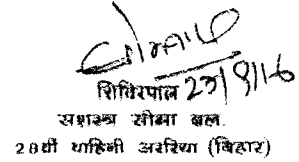 23/9/16
शिविरपाल
सशस्त्र सीमा बल.
28वीं वाहिनी अररिया (बिहार)